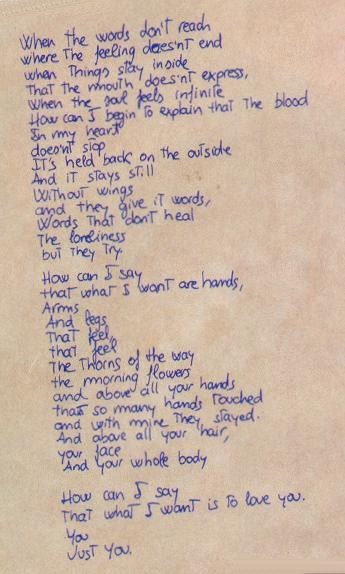 When the words don't reach
where The feeling does'nt end
when Things stay inside
That the mouth does'nt express,
When the soul feels infinite
How can I begin To explain that The blood
In my heart
does'nt stop
It's held back on the outside
And iT stays still
WithouT wings
and they give iT words,
Words That don't heal
The loneliness
buT They Try.
How can I say
that what I want are hands,
Arms
And legs
That feel,
that feel
The Thorns of the way
the morning flowers
and above all your hands
that so many hands Touched
and with mine They stayed.
And above all your hair,
your face
And your whole body
How can I say
That what I want is To love you.
You
Just You.